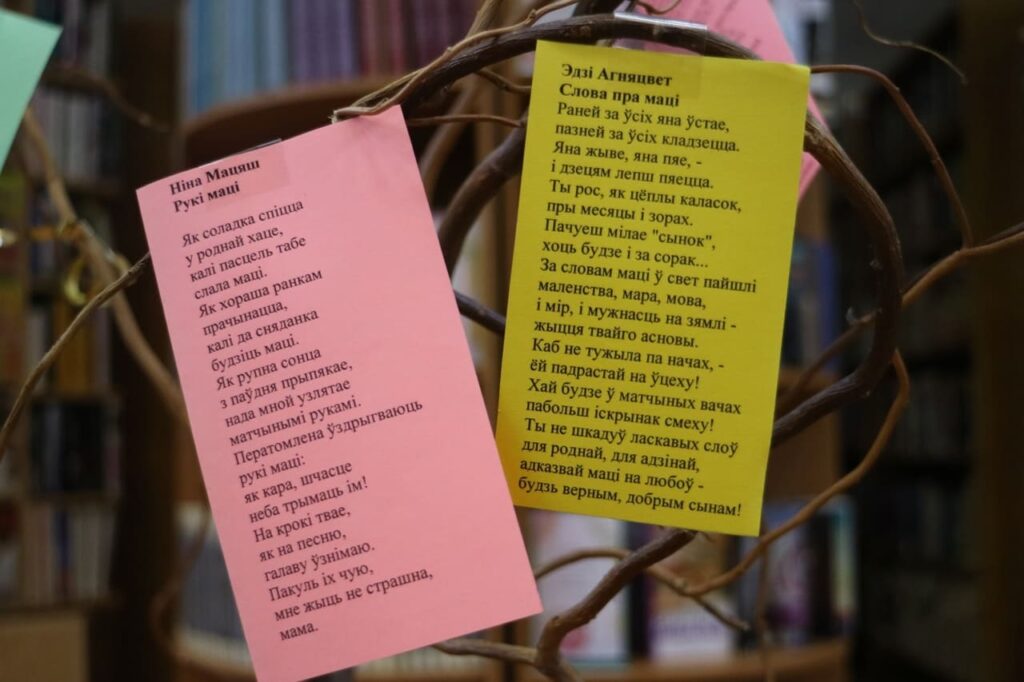 Ніна Мацяш
Рукі маці
Як соладка спіцца
у роднай хаце,
калі пасцель табе
слала маці.
Як хораша ранкам
прачынацца,
калі да сняданка
будзіць маці.
Як рупна сонца
з паўдня прыпякае,
нада мной узлятае
матчынымі рукамі.
Ператомлена ўздрыгваюць
рукі маці:
як кара, шчасце
неба трымаць ім!
На крокі твае,
як на песню,
галаву ўзнімаю.
Пакуль іх чую,
мне жыць не страшна,
мама.
Эдзі Агняцвет
Слова пра маці
Раней за ўсіх яна ўстае,
пазней за ўсіх кладзецца.
Яна жыве, яна пяе, -
і дзецям лепш пяецца.
Ты рос, як цёплы каласок,
пры месяцы і зорах.
Пачуеш мілае "сынок",
хоць будзе і за сорак...
За словам маці ў свет пайшлі
маленства, мара, мова,
і мір, і мужнасць на зямлі -
жыцця твайго асновы.
Каб не тужыла па начах, -
ёй падрастай на ўцеху!
Хай будзе ў матчыных вачах
пабольш іскрынак смеху!
Ты не шкадуў ласкавых слоў
для роднай, для адзінай,
адказвай маці на любоў -
будзь верным, добрым сынам!